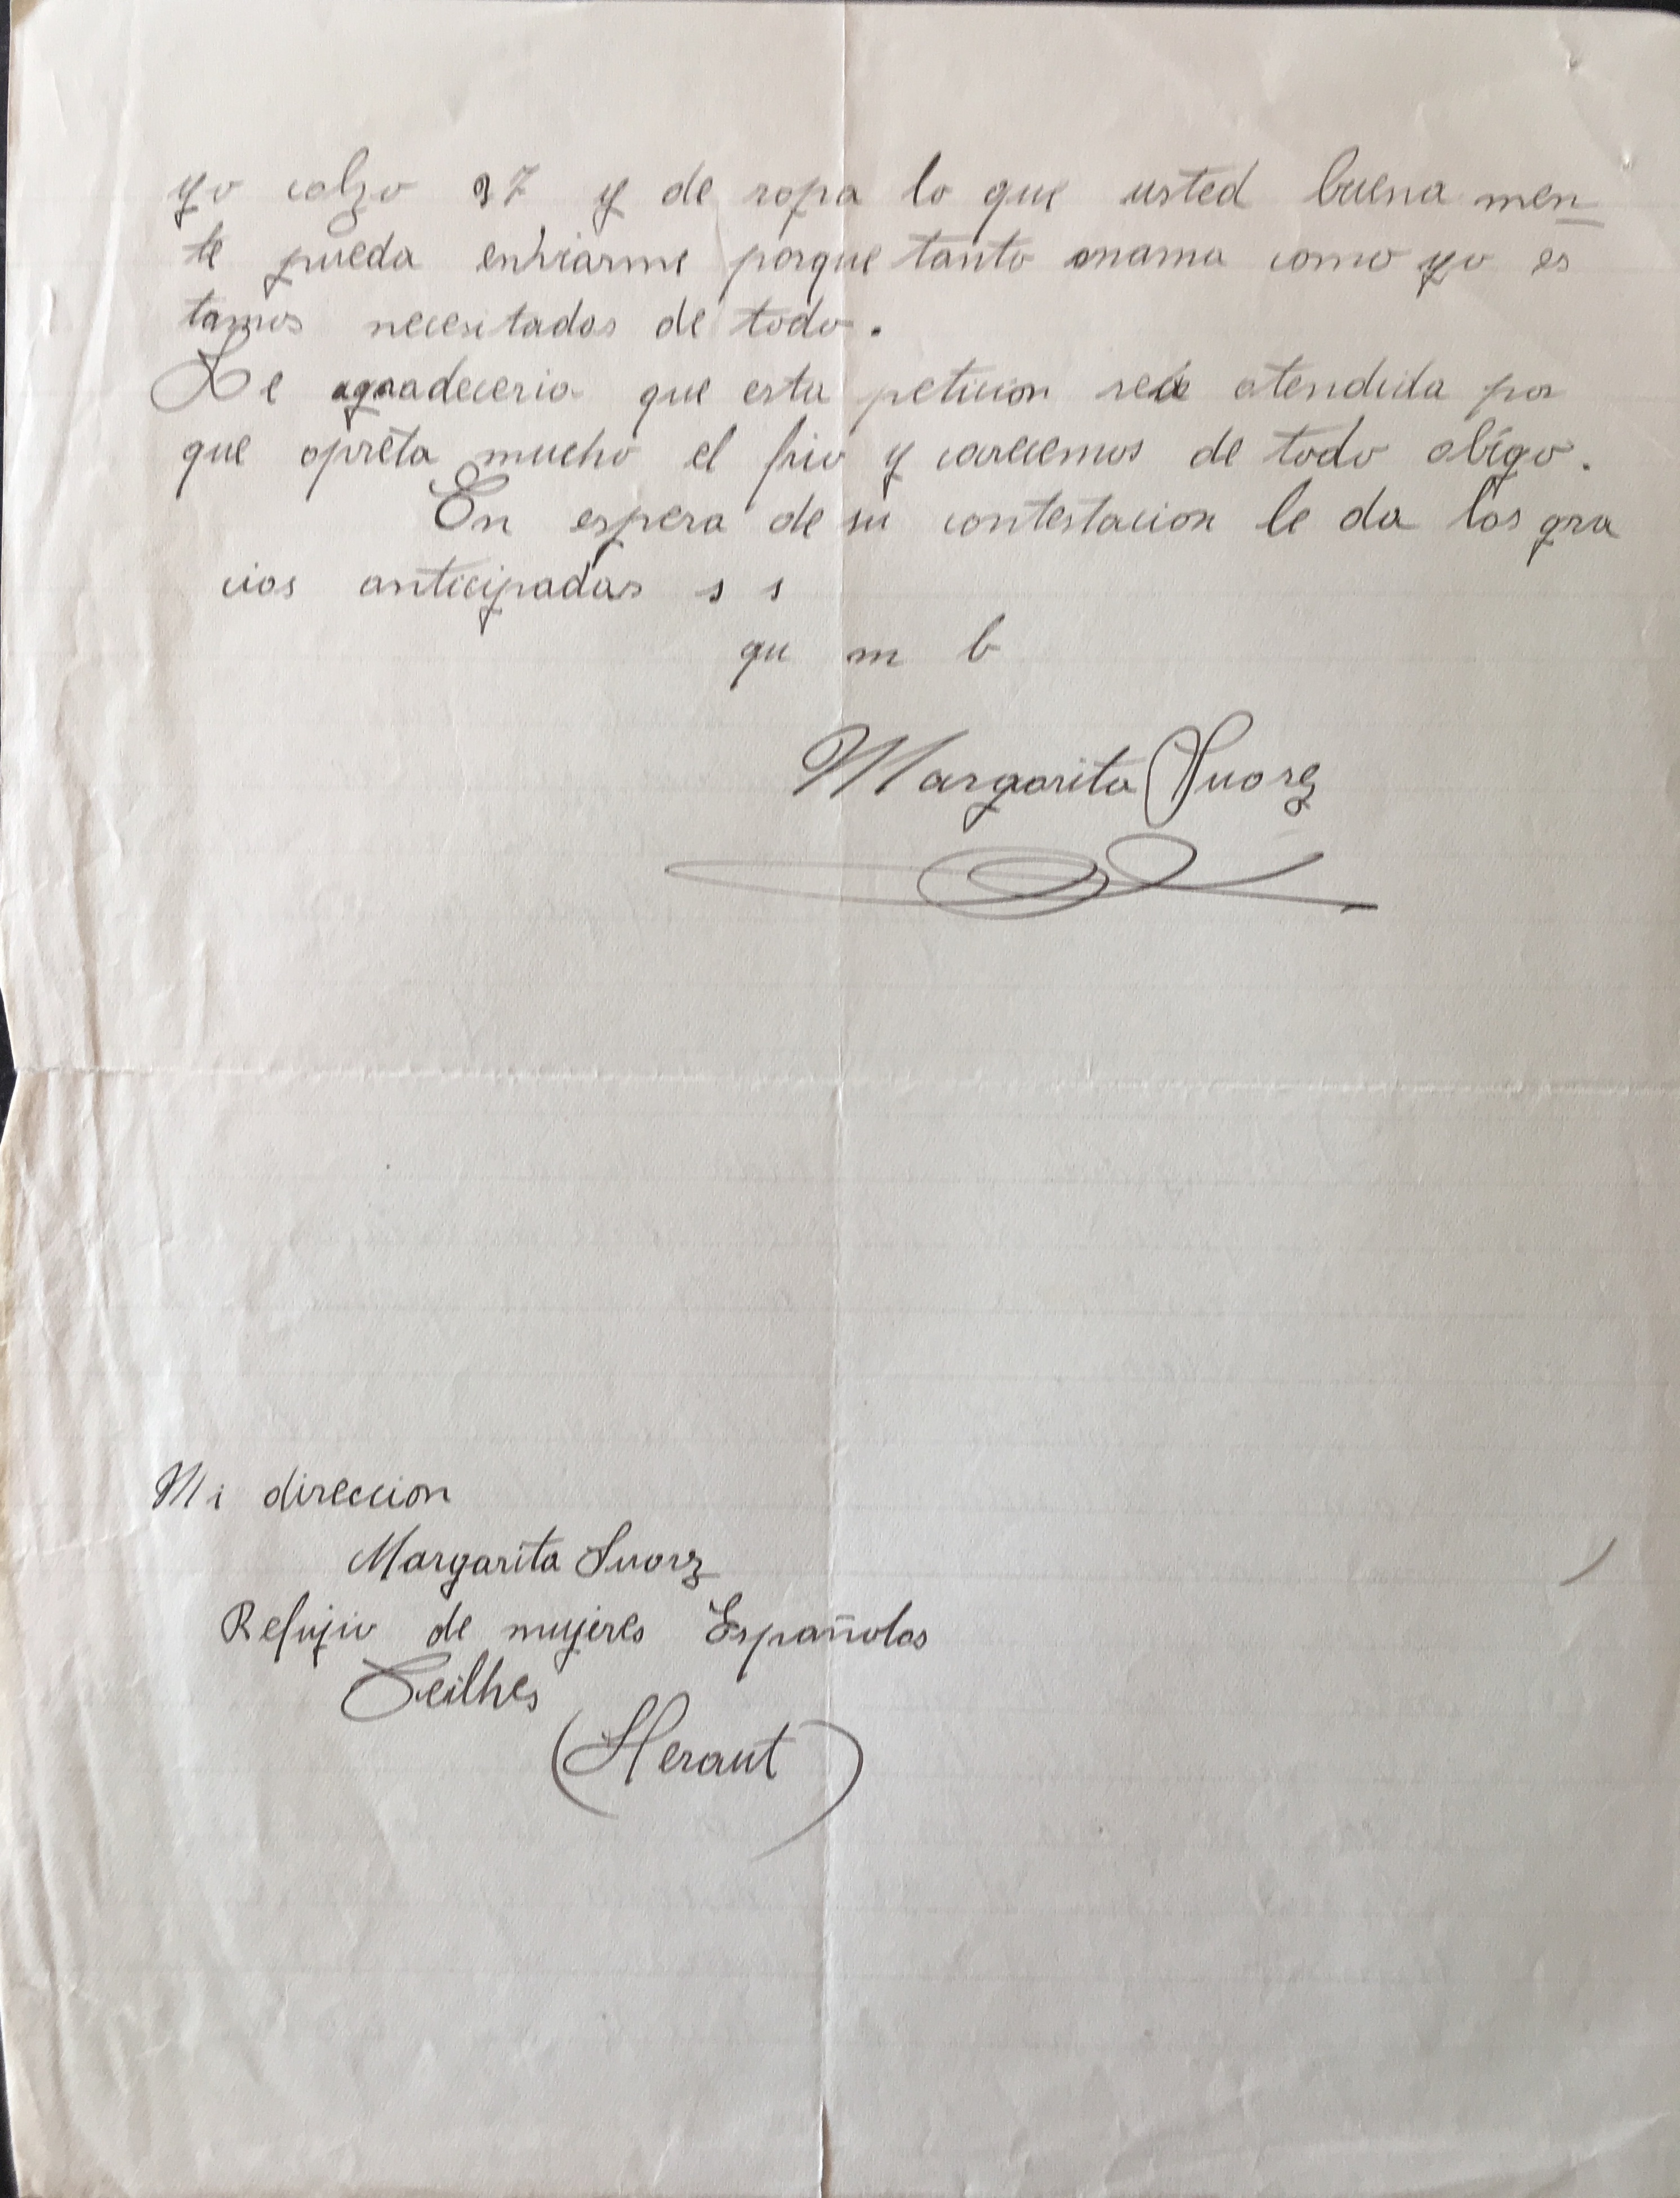 yo calzo 37 y de ropa lo que usted buena men
te pueda enviarme porque tanto mama como yo es
tamos necesitados de todo.
Le agradeceria que esta peticion sea atendida por
que apreta mucho el frio y carecemos de todo abigo.
En espera de su contestacion le da las gra
cias anticipadas s s
qu m b
Margarita Suarez
Mi direccion
Margarita Suarez
Refujio de mujeres Españolas
Ceilhes
(Heraut)